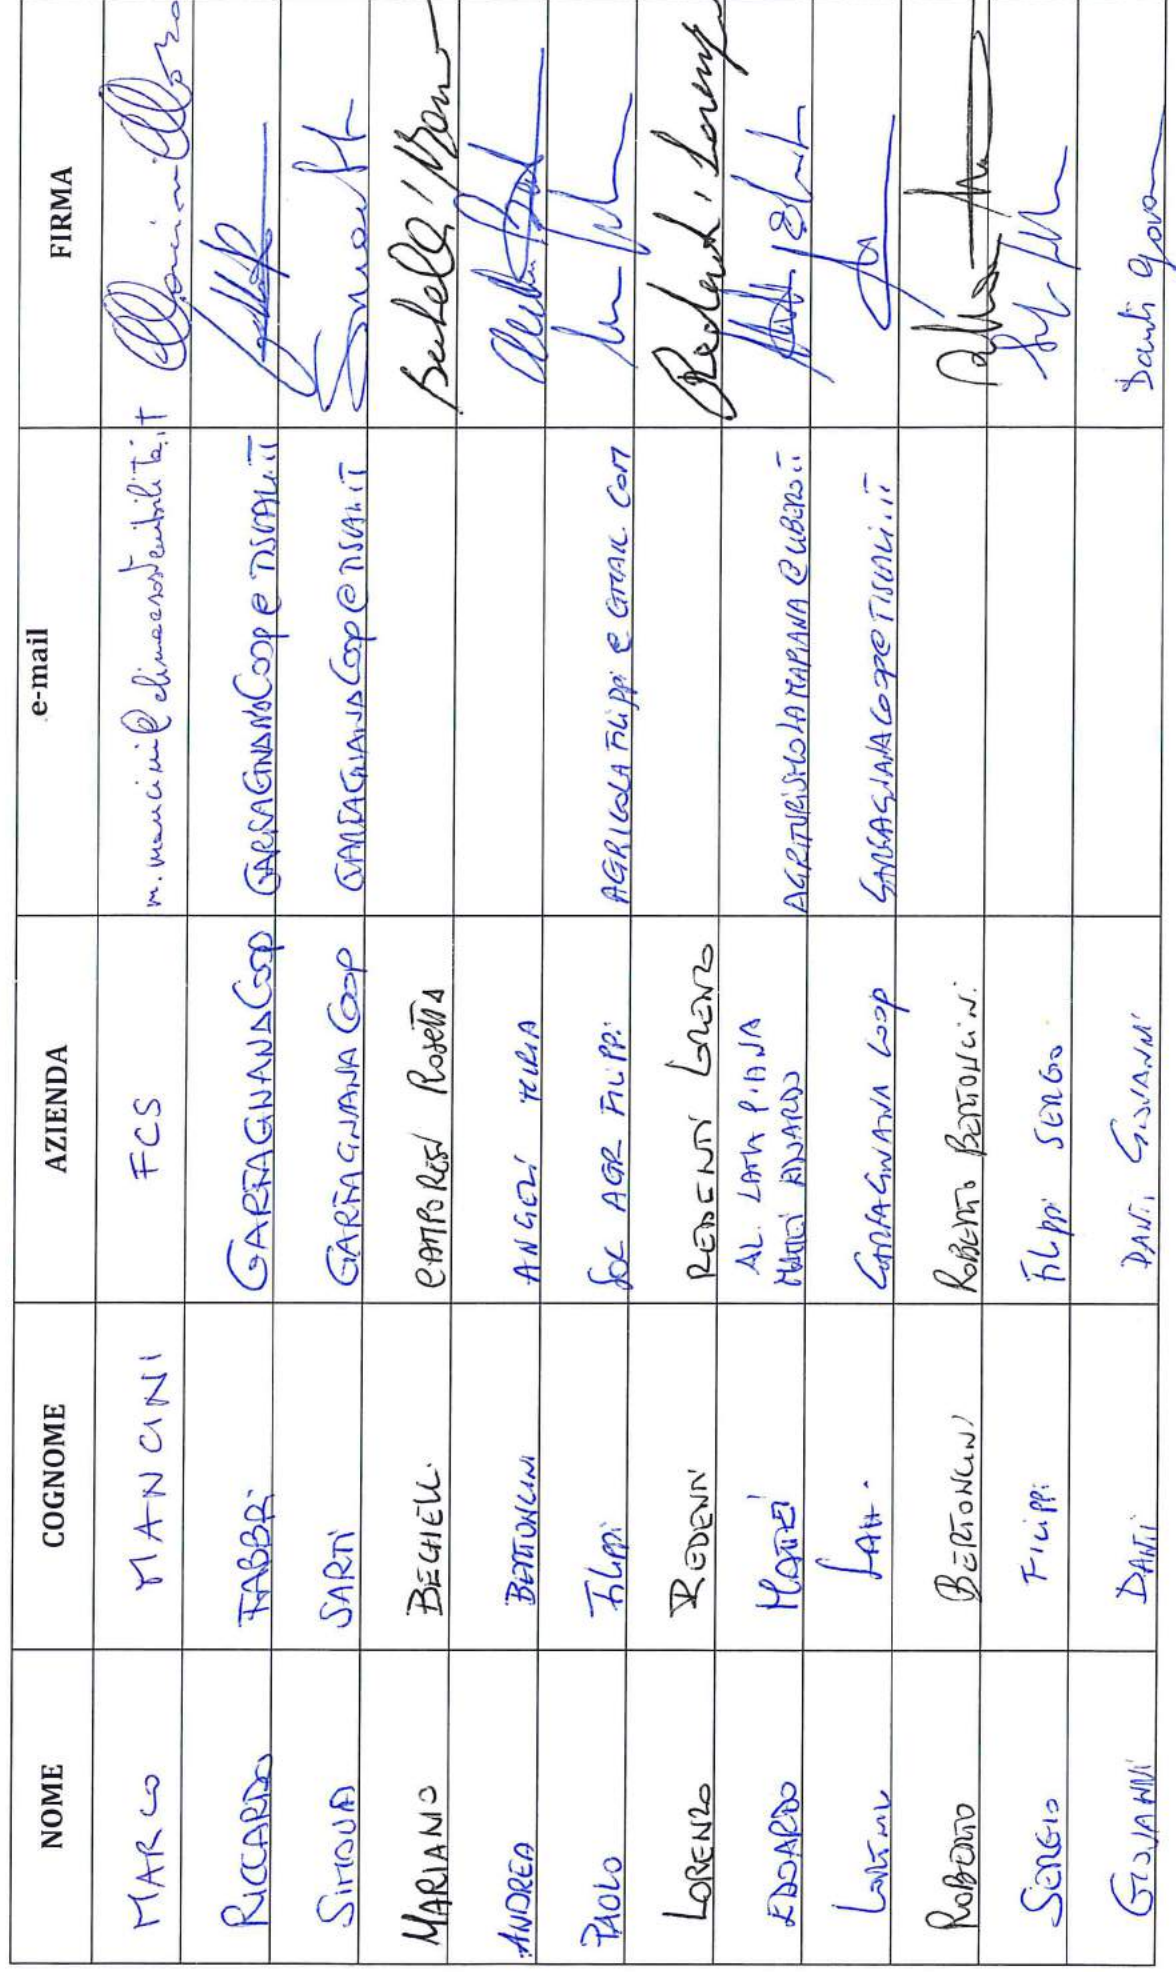 NOME COGNOME AZIENDA e-mail FIRMA
MARCO MANCINI FCS m.mancini@climaesostenibilita.it Mancini Marco
RICCARDO FABBRI GARFAGNANACOOP GARFAGNANACOOP@TISCALI.IT
SIMONA SARTI GARFAGNANA COOP GARFAGNANACOOP@TISCALI.IT
MARIANO BECHELLI CAMPORESI ROSETTA Bechelli
ANDREA BERTONCINI ANGELI
PAOLO FILIPPI SOC AGR FILIPPI AGRICOLA FILIPPI @ GMAIL COM
LORENZO REDENTI REDENTI LORENZO Redenti Lorenzo
EDOARDO MATTEI AL. LAMA PIANA
MATTEI EDOARDO AGRITURISMOLAMAPIANA@LIBERO.IT
GARFAGNANA COOP GARFAGNANACOOP@TISCALI.IT
ROBERTO BERTONCINI ROBERTO BERTONCINI
SERGIO FILIPPI FILIPPI SERGIO
GIOVANNI DANTI DANTI GIOVANNI Danti Giovanni